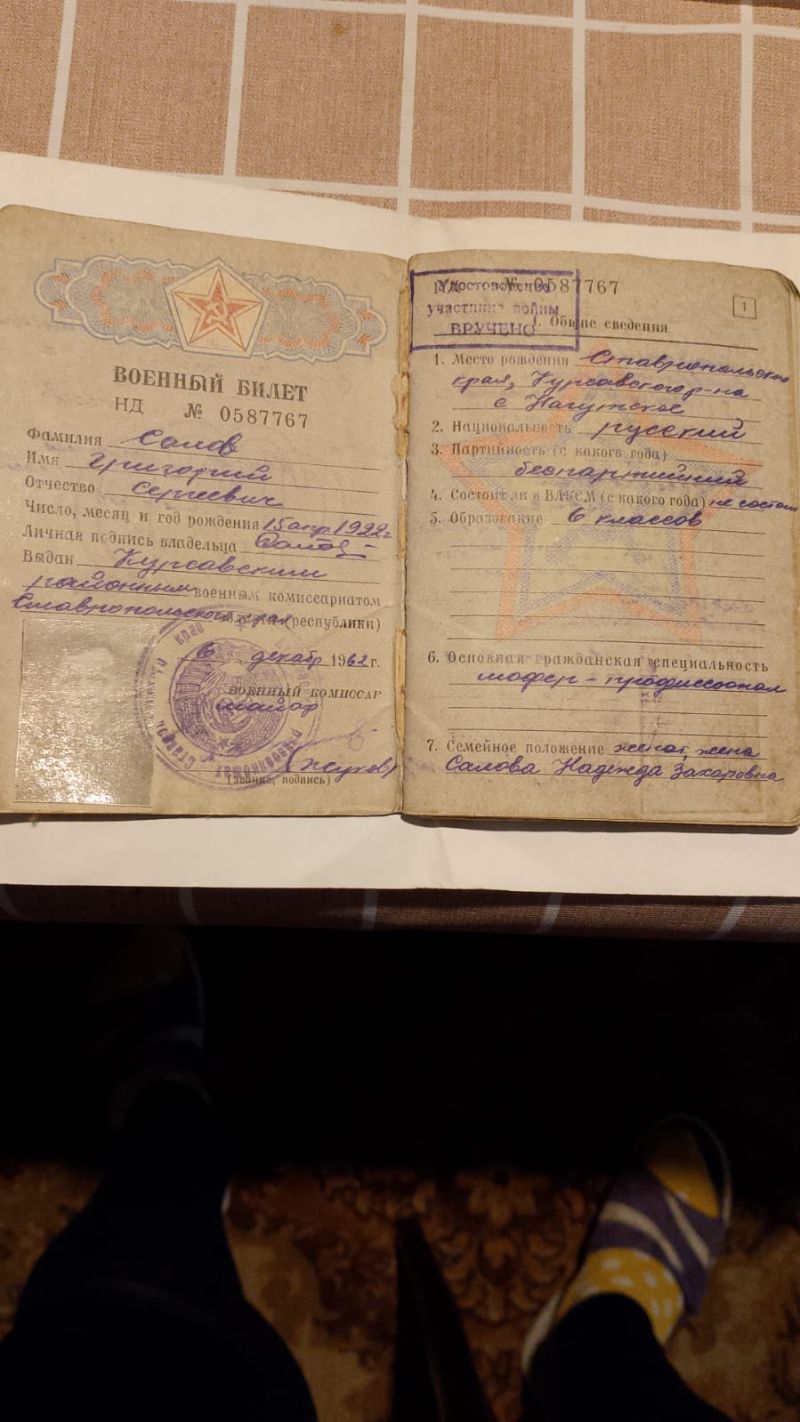 ВОЕННЫЙ БИЛЕТ
НД № 0587767
Фамилия Салов
Имя Григорий
Отчество Сергеевич
Число, месяц и год рождения 15 апр 1922 г
Личная подпись владельца Салов
Выдан Курсавским
районным военным комиссариатом
Ставропольского края (республики)
6 декабр 1962 г.
ВОЕННЫЙ КОМИССАР
майор
(Жуков)
(звание, подпись)
№ 0587767
1
Удостоверение
участника войны
ВРУЧЕНО
Общие сведения
1. Место рождения Ставропольского
края, Курсавского р-на
с Нагутское
2. Национальность русский
3. Партийность (с какого года)
беспартийный
4. Состоял ли в ВЛКСМ (с какого года) не состоял
5. Образование 6 классов
6. Основная гражданская специальность
шофер - профиссонал
7. Семейное положение женат, жена
Салова Надежда Захаровна